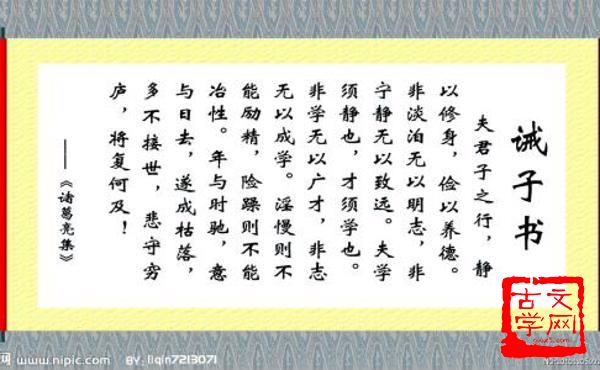 诫子书
夫君子之行，静
以修身，俭以养德。
非淡泊无以明志，非
宁静无以致远。夫学
须静也，才须学也。
非学无以广才，非志
无以成学。淫慢则不
能励精，险躁则不能
冶性。年与时驰，意
与日去，遂成枯落，
多不接世，悲守穷
庐，将复何及！
——《诸葛亮集》
古文
学网
网 www.nipic.com BY: liqin7213071